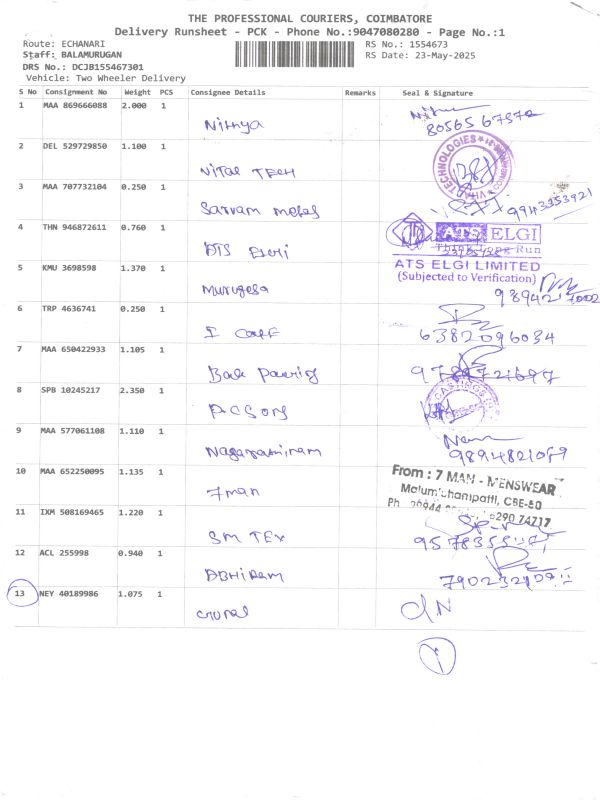 THE PROFESSIONAL COURIERS, COIMBATORE
Delivery Runsheet - PCK - Phone No.:9047080280 - Page No.:1
Route: ECHANARI RS No.: 1554673
Staff: BALAMURUGAN RS Date: 23-May-2025
DRS No.: DCJB155467301
Vehicle: Two Wheeler Delivery
S No Consignment No Weight PCS Consignee Details Remarks Seal & Signature
1 MAA 869666088 2.000 1 Nithya
2 DEL 529729850 1.100 1 Nital TECH
TECHNOLOGIES
3 MAA 707732104 0.250 1 Satvam 9943353921
4 THN 946872611 0.760 1 ATS ELGI
ATS ELGI LIMITED
(Subjected to Verification)
5 KMU 3698598 1.370 1 Murugesa
6 TRP 4636741 0.250 1 6382096034
7 MAA 650422933 1.105 1
8 SPB 10245217 2.350 1
CASTINGS
9 MAA 577061108 1.110 1 9894821059
10 MAA 652250095 1.135 1 7man From : 7 MAN - MENSWEAR
CBE-50
Ph 74717
11 IXM 508169465 1.220 1 SM TEX
12 ACL 255998 0.940 1 ABHIRAM
13 NEY 40189986 1.075 1